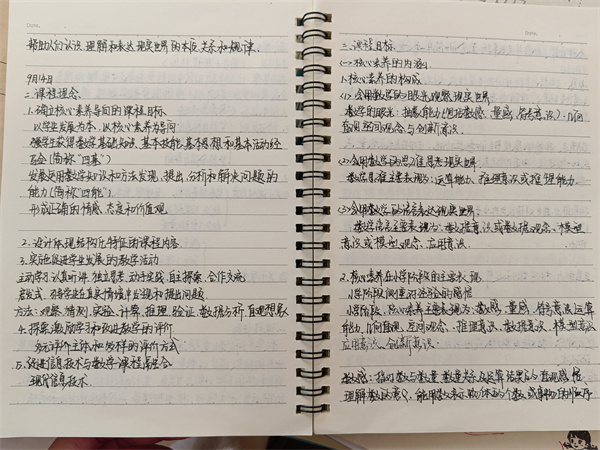 帮助人们认识、理解和表达现实世界的本质、关系和规律.
9月14日
二、课程理念
1.确立核心素养导向的课程目标
以学生发展为本,以核心素养为导向
强学生获得数学基础知识、基本技能、基本思想和基本活动经
验(简称"四基")
发展运用数学知识和方法发现、提出、分析和解决问题的
能力(简称"四能")
形成正确的情感、态度和价值观.
2.设计体现结构化特征的课程内容
3.实施促进学生发展的数学活动
主动学习、认真听讲、独立思考、动手实践、自主探索、合作交流
启发式、引导学生在真实情境中发现和提出问题
方法:观察、猜测、实验、计算、推理、验证、数据分析、直观想象
4.探索激励学习和改进教学的评价
多元评价主体和多样的评价方式
5.促进信息技术与数学课程融合
现代信息技术.
三、课程目标
(一)核心素养的内涵
1.核心素养的构成
(1)会用数学的眼光观察现实世界
数学的眼光:抽象能力(包括数感、量感、符号意识)、几何
直观、空间观念与创新意识.
(2)会用数学的思维思考现实世界
数学思维主要表现为:运算能力、推理意识或推理能力.
(3)会用数学的语言表达现实世界
数学语言主要表现为:数据意识或数据观念、模型
意识或模型观念、应用意识.
2.核心素养在小学阶段的主要表现
小学阶段侧重对经验的感悟
小学阶段,核心素养主要表现为:数感、量感、符号意识、运算
能力、几何直观、空间观念、推理意识、数据意识、模型意识
应用意识、创新意识.
数感:指对数与数量、数量关系及运算结果的直观感悟.
理解数的意义,能用数表示物体的个数或事物的顺序